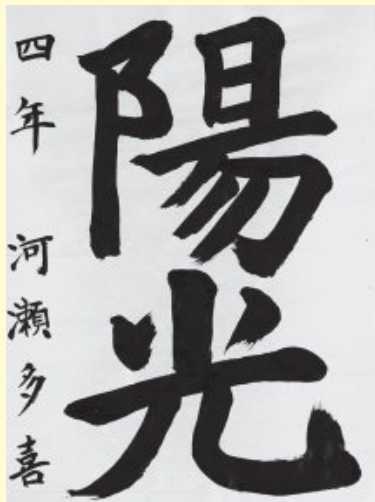 陽光
四年 河瀬多喜